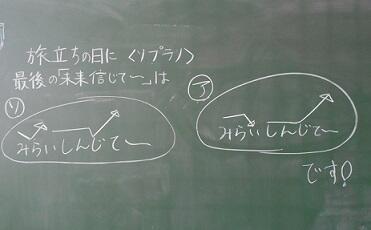 旅立ちの日に〈ソプラノ〉
最後の「未来信じて〜」は
ソ
みらいしんじて〜
ア
みらいしんじて〜
です!